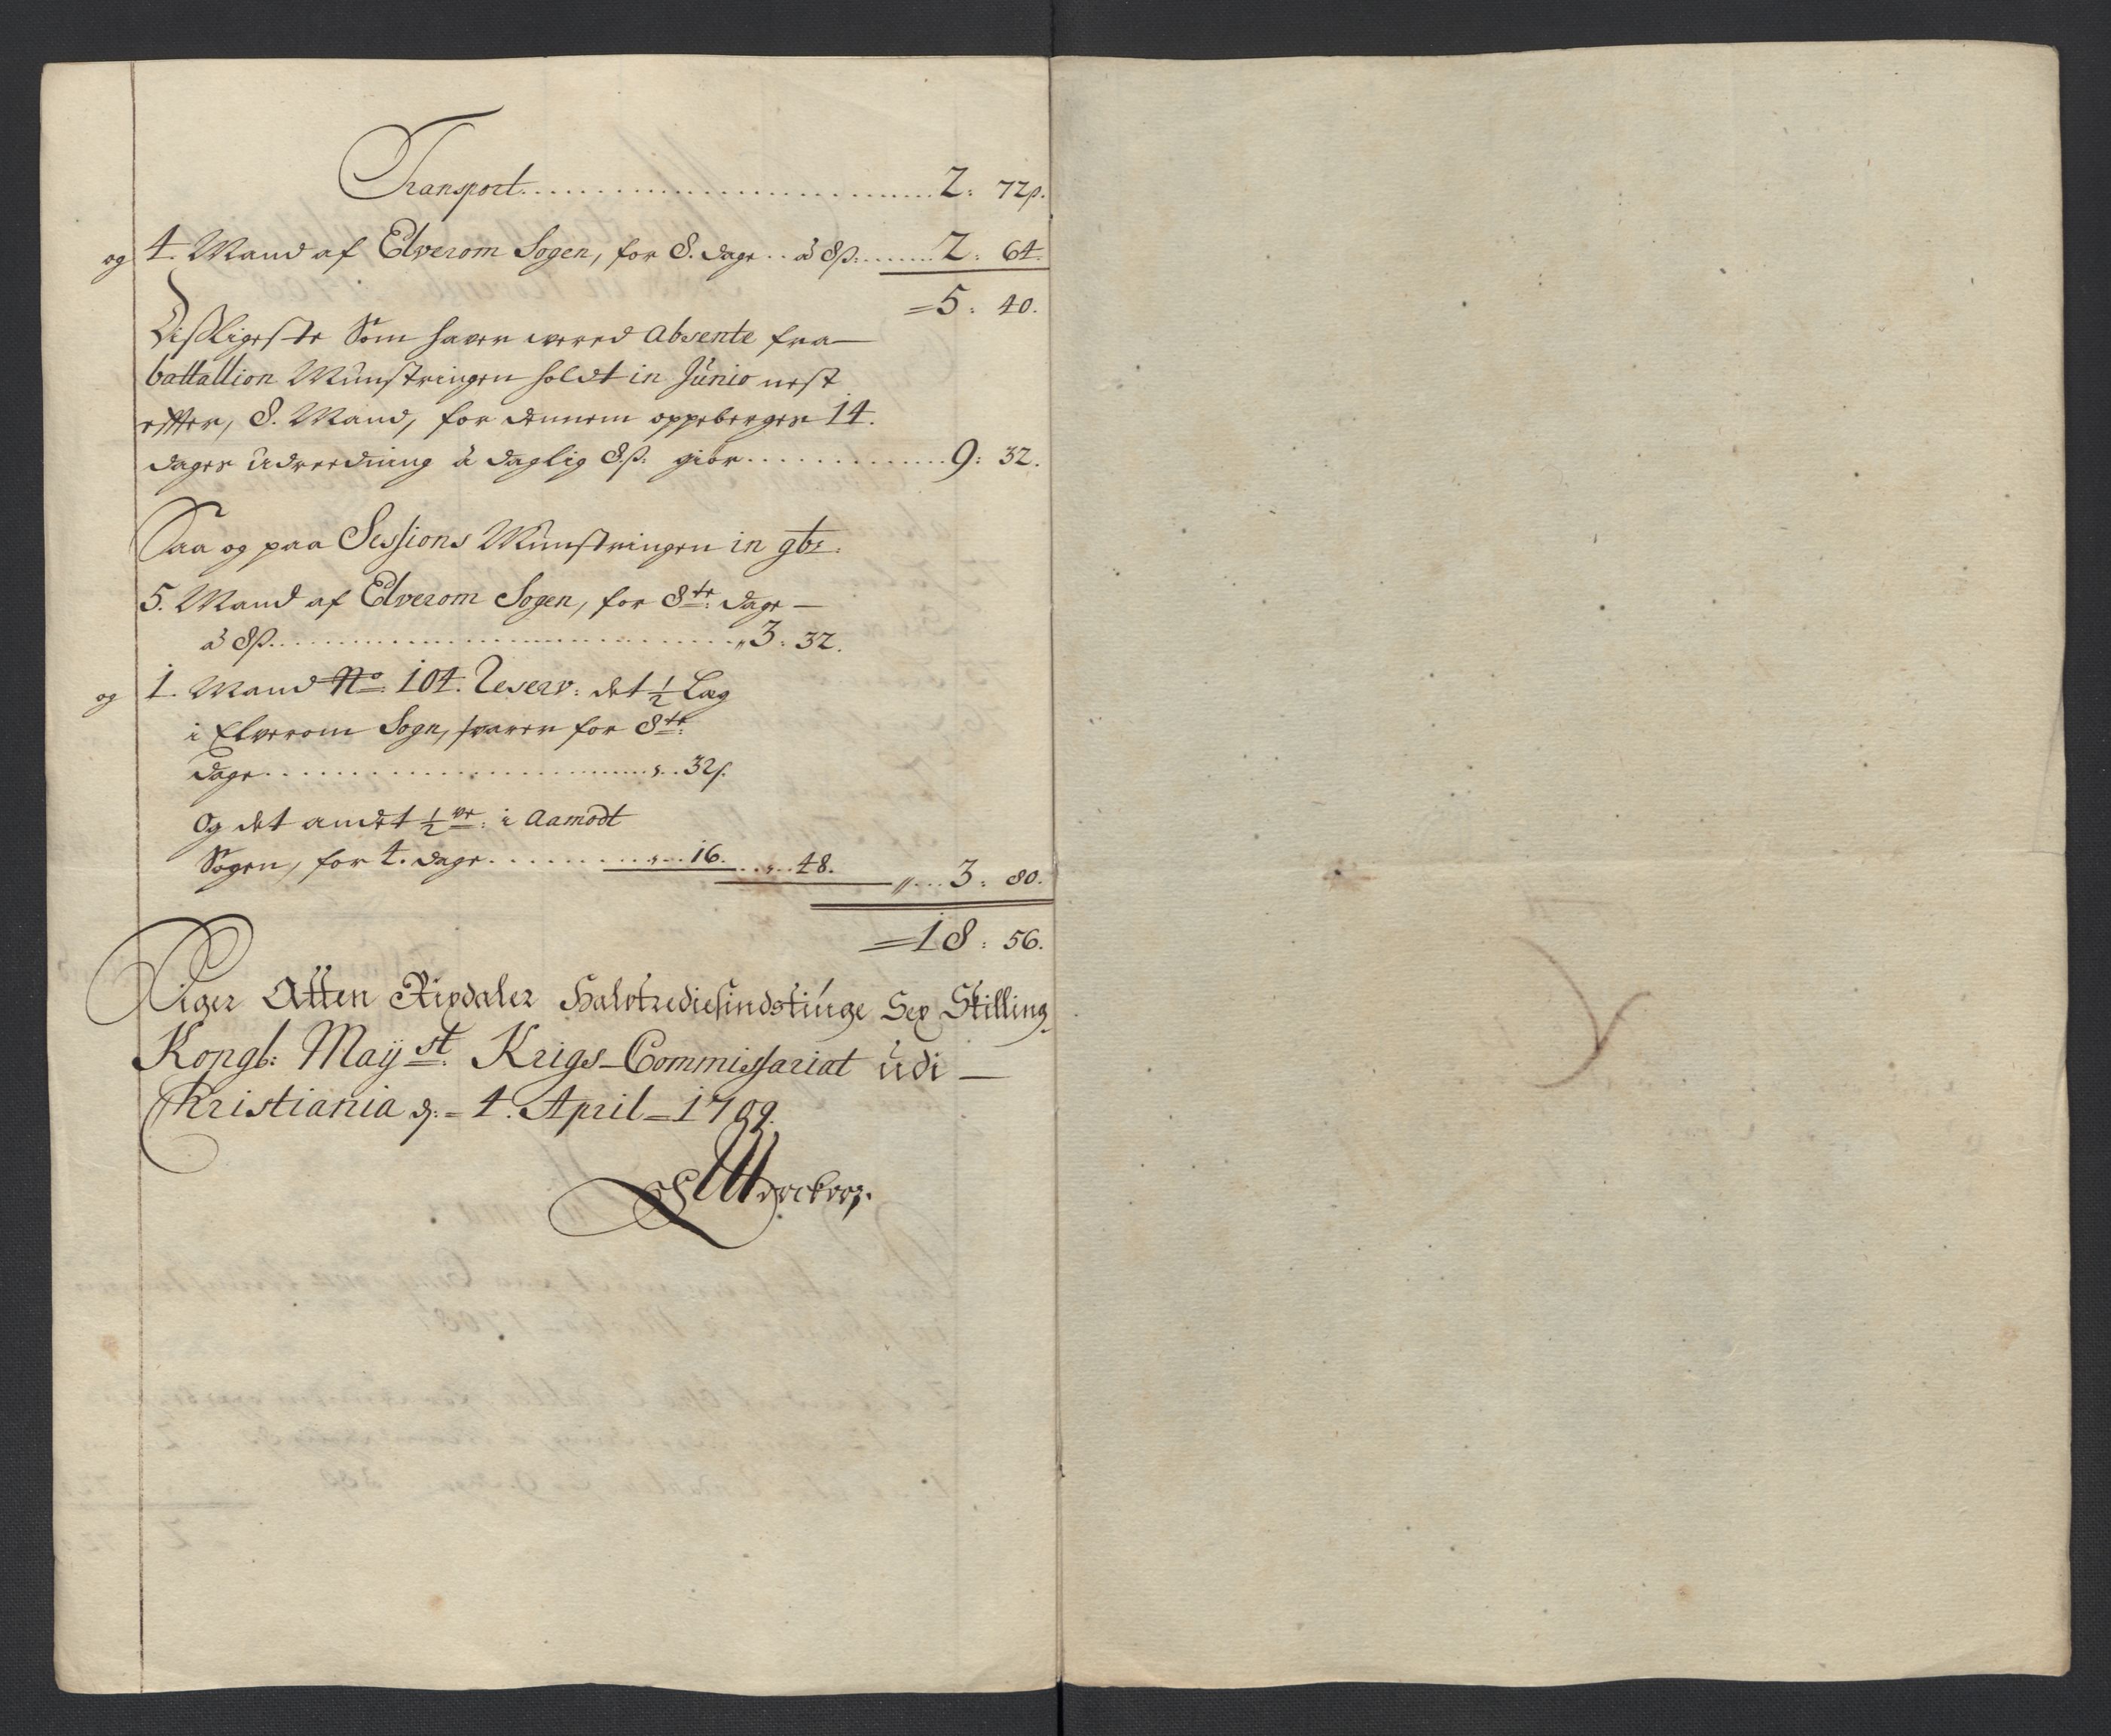 Transport 2: 72ß.
og 4. Mand af Elverom Sogen, for 8. dage .. â 8ß. 2: 64.
=5: 40.
Disligeste Som haver wered absente fra
battallion Munstringen holdt in Junio nest
effter, 8. Mand, for dennem oppeberges 14.
dages Udreedning â daglig 8.ß: giør 9: 32.
Saa og paa Sessions Munstringen in 9br:
5. Mand af Elverom Sogen, for 8te: dage —
â 8ß. 3: 32.
og 1. Mand No 104. Reserv: det ½ Læg
i Elverom Sogn, svarer for 8te:
dage 32ß.
Og det andet ½ i Aamodt
Sogen, for 4. dage 16. 48. 3: 80.
=18: 56.
Siger Atten Rixdaler Halvtrediesindstiuge Sex Skilling
Kongl: Mayst: Krigs-Commissariat udi —
Christiania d: = 4. April = 1709.